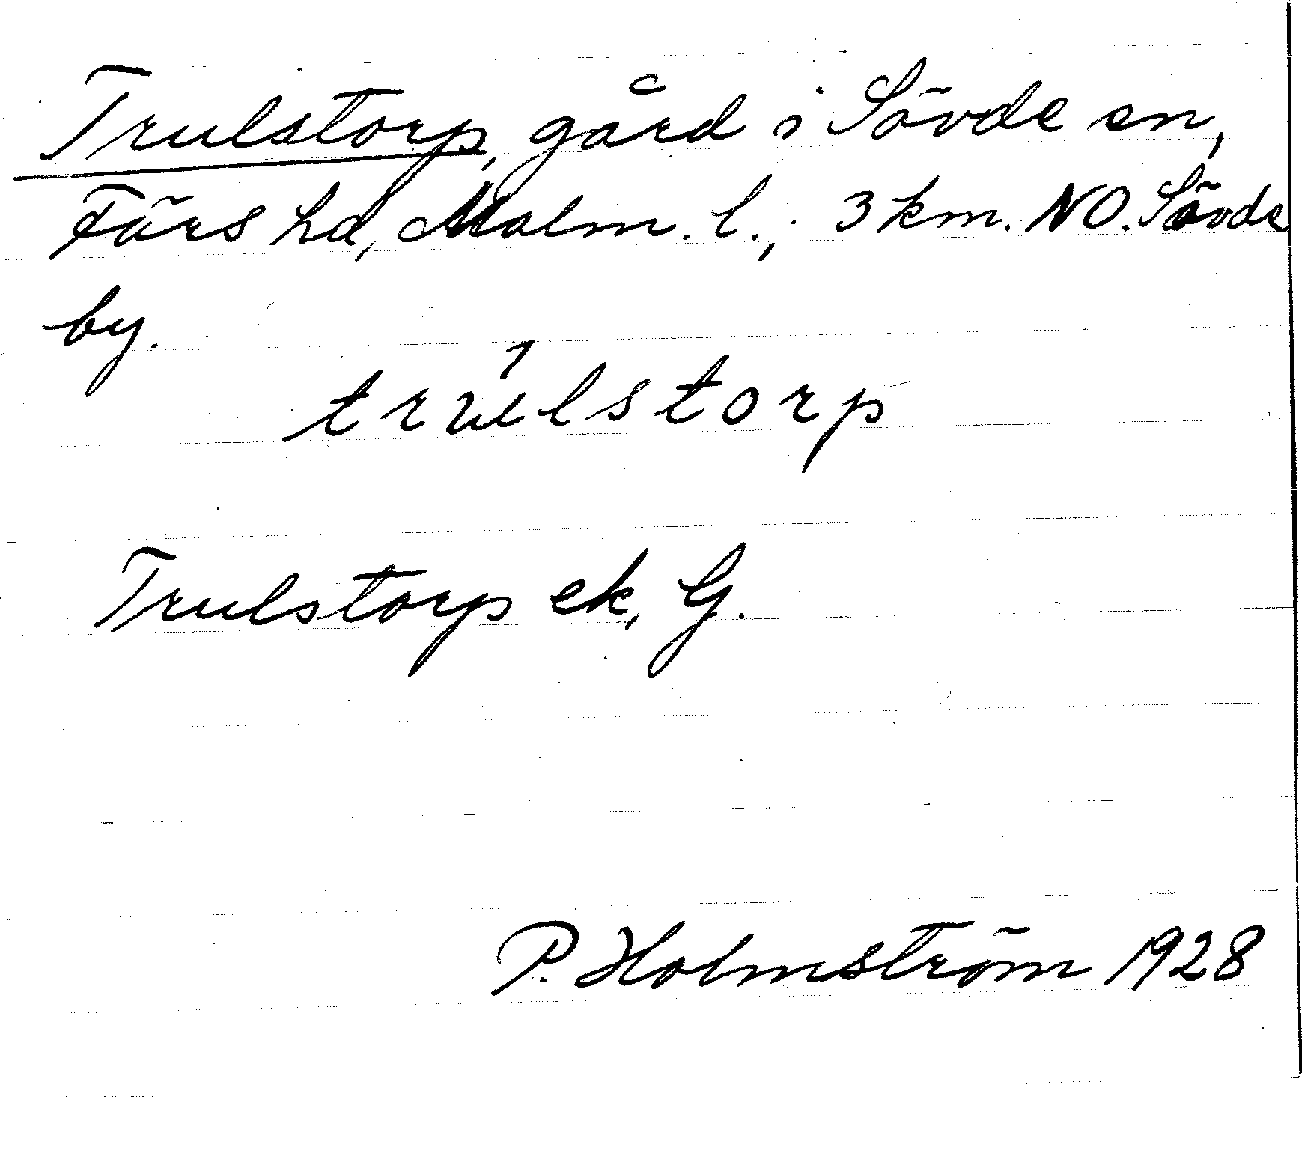 Trulstorp, gård i Sövde sn,
Färs hd, Malm. l.; 3 km. NO. Sövde
by.
trúlstorp
Trulstorp ek, G.
P. Holmström 1928